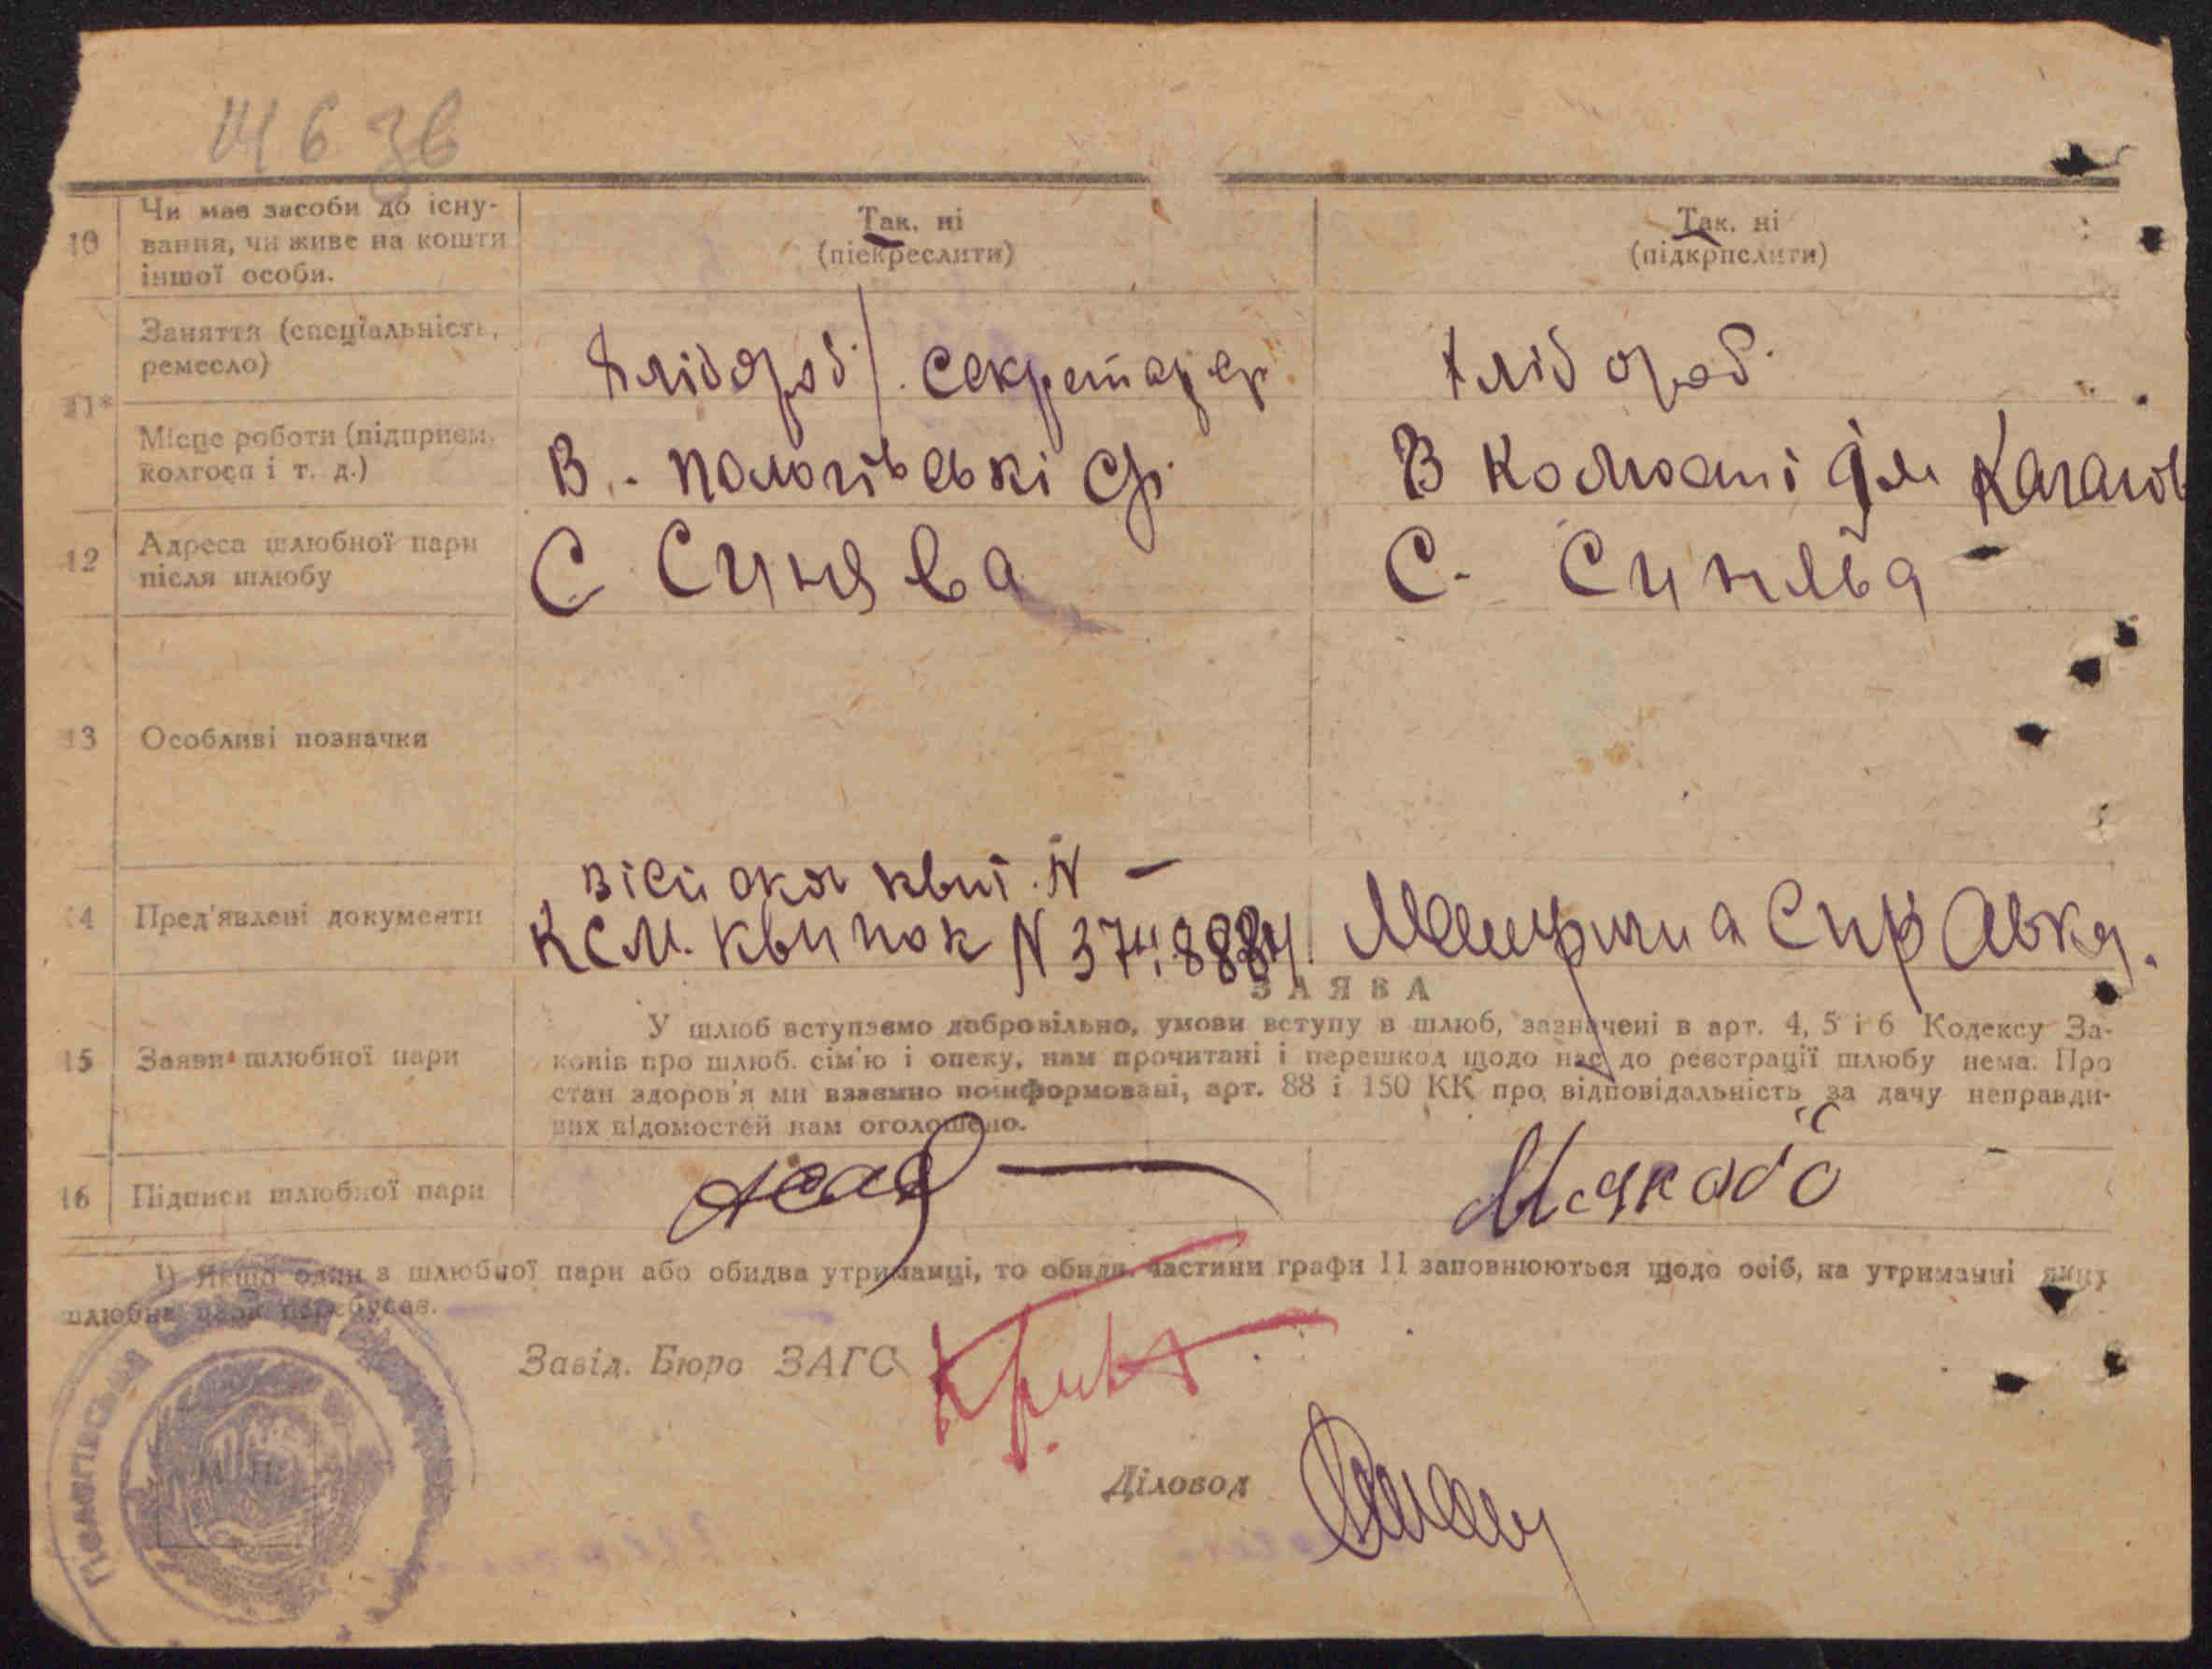 10 Чи має засоби до існу-
вання, чи живе на кошти
іншої особи.
Так, ні
(піекреслити)
Так, ні
(підкрпслити)
11* Заняття (спеціальність,
ремесло)
Хлібороб / секретар ср
Хлібороб.
Місце роботи (підприєм.
колгосп і т. д.)
В. Пологівські ср.
В колгоспі ім Каганов
12 Адреса шлюбної пари
після шлюбу
С Синява
С. Синява -
13 Особливі позначки
14 Пред'явлені документи
війсков квит. N —
КСМ. квиток N
Метрична Справка.
15 Заяви шлюбної пари
ЗАЯВА
У шлюб вступаємо добровільно, умови вступу в шлюб, зазначені в арт. 4, 5 і 6 Кодексу За-
конів про шлюб. сім'ю і опеку, нам прочитані і перешкод щодо нас до реєстрації шлюбу нема. Про
стан здоров'я ми взаємно поінформовані, арт. 88 і 150 КК про відповідальність за дачу неправди-
вих відомостей нам оголошено.
16 Підписи шлюбної пари
1) Якщо один з шлюбної пари або обидва утриманці, то обидві частини графи 11 заповнюються щодо осіб, на утриманні яких
шлюбна пара перебуває.
Завід. Бюро ЗАГС
М. П.
Діловод